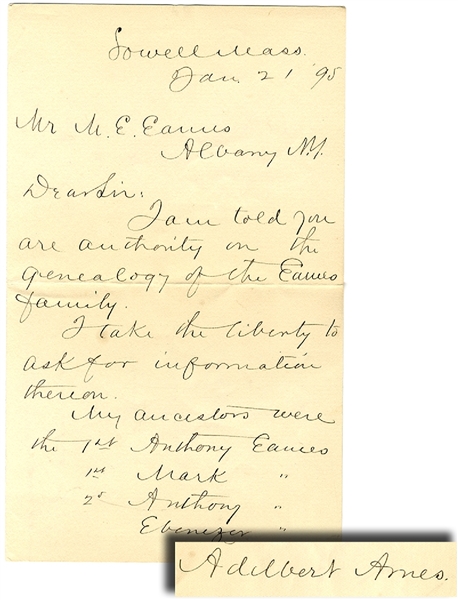 Lowell Mass.
Jan 21 '95
Mr M. E. Eames
Albany N.Y.
Dear Sir:
I am told you
are authority on the
genealogy of the Eames
family.
I take the liberty to
ask for information
thereon.
My ancestors were
the 1st Anthony Eames
1st Mark "
2d Anthony "
Ebenezer "
Adelbert Ames.